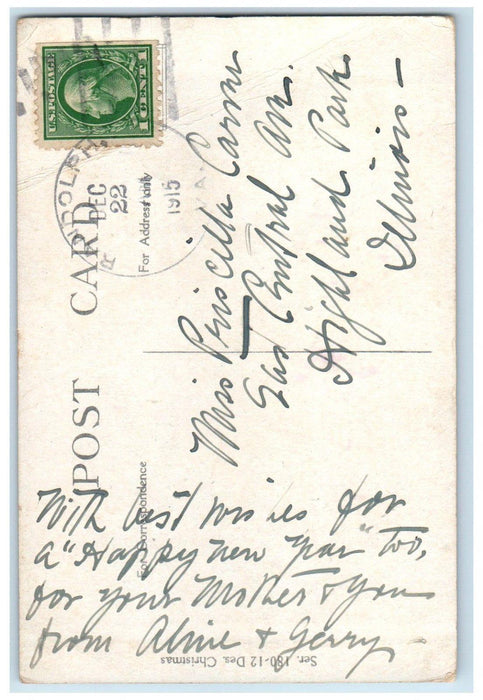 POST CARD
For Correspondence
For Address only
U.S. POSTAGE
1 CENT 1
DEC
22
1915
Miss Priscilla Carver
East Central Ave.
Highland Park
Illinois —
With best wishes for
a "Happy new year" too,
for your Mother & you
from Aline & Gerry
Ser. 180-12 Des. Christmas